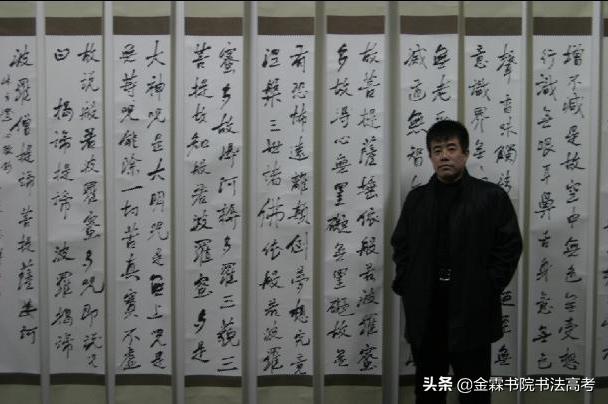 增不減是故空中無色無受想
行識無眼耳鼻舌身意無色
聲香味觸法
意識界無
無老
滅道無智
故菩提薩埵依般若波羅蜜
多故得心無罣礙無罣礙故無
有恐怖遠離顛倒夢想究竟
涅槃三世諸佛依般若波羅
蜜多故得阿耨多羅三藐三
菩提故知般若波羅蜜多是
大神咒是大明咒是無上咒是
無等咒能除一切苦真實不虛
故說般若波羅蜜多咒即說咒
曰揭諦揭諦波羅揭諦
波羅僧揭諦菩提薩婆訶
头条 @金霖书院书法高考